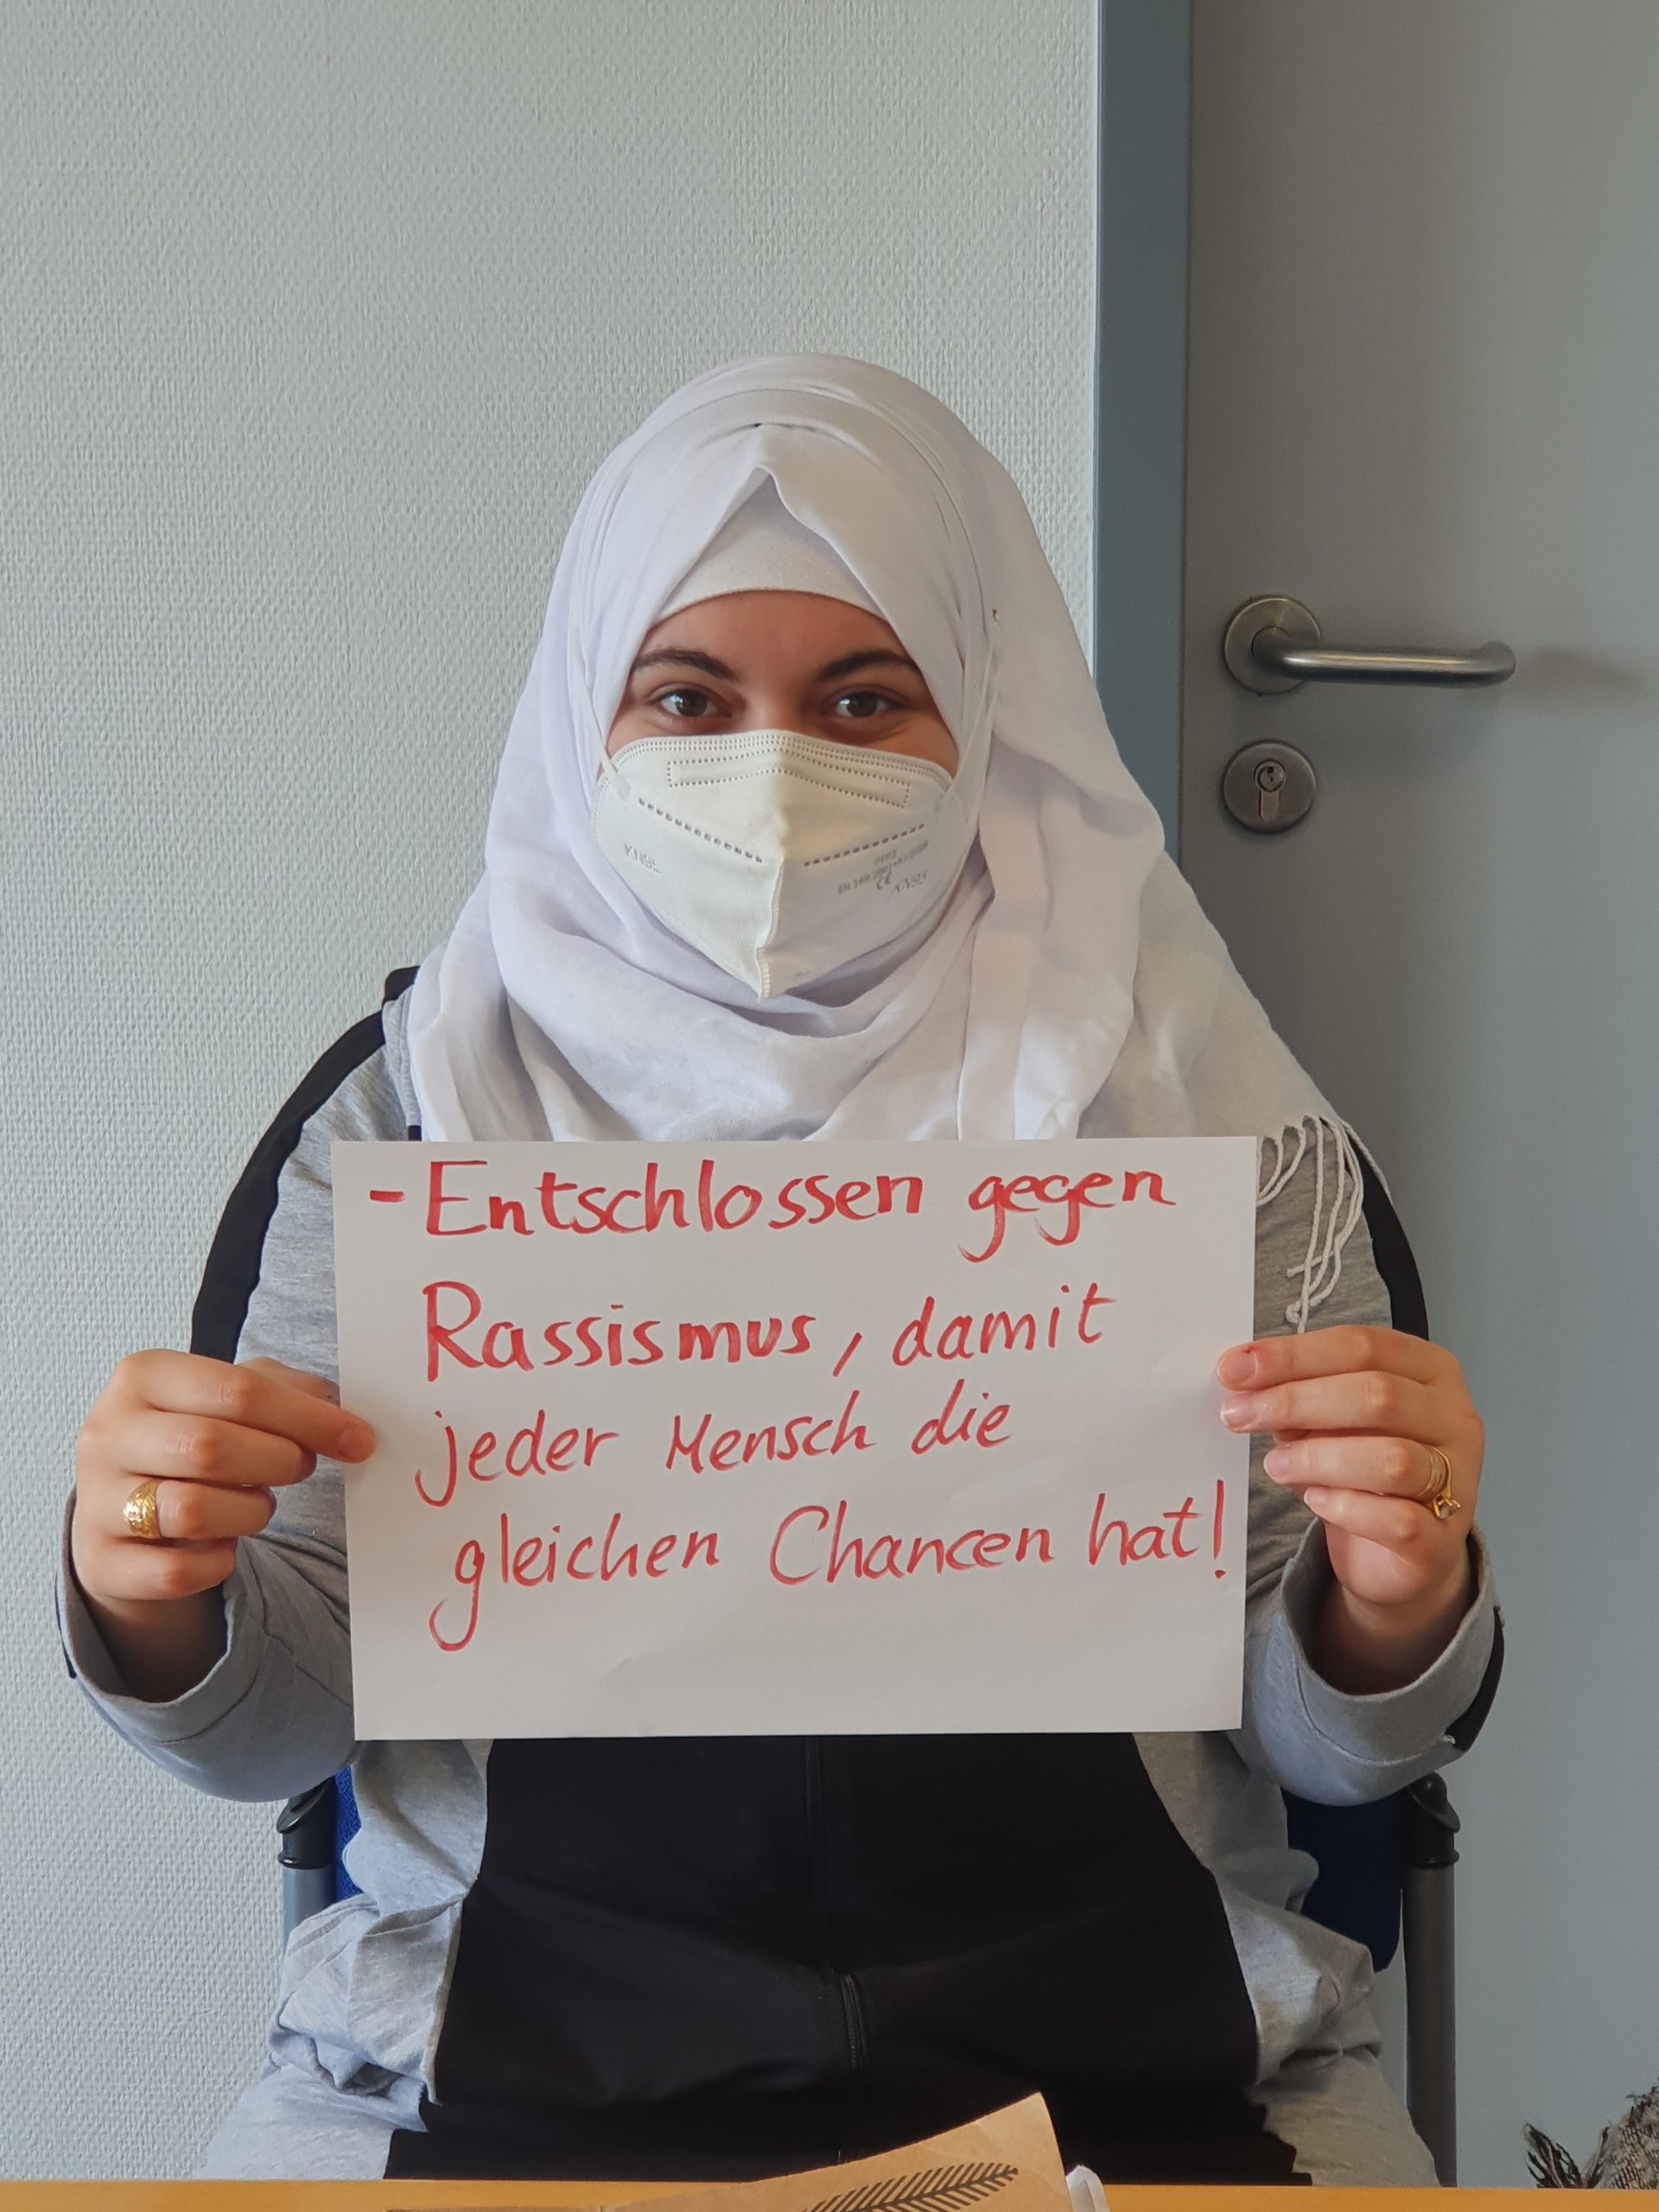 KN95
KN95
- Entschlossen gegen
Rassismus, damit
jeder Mensch die
gleichen Chancen hat!